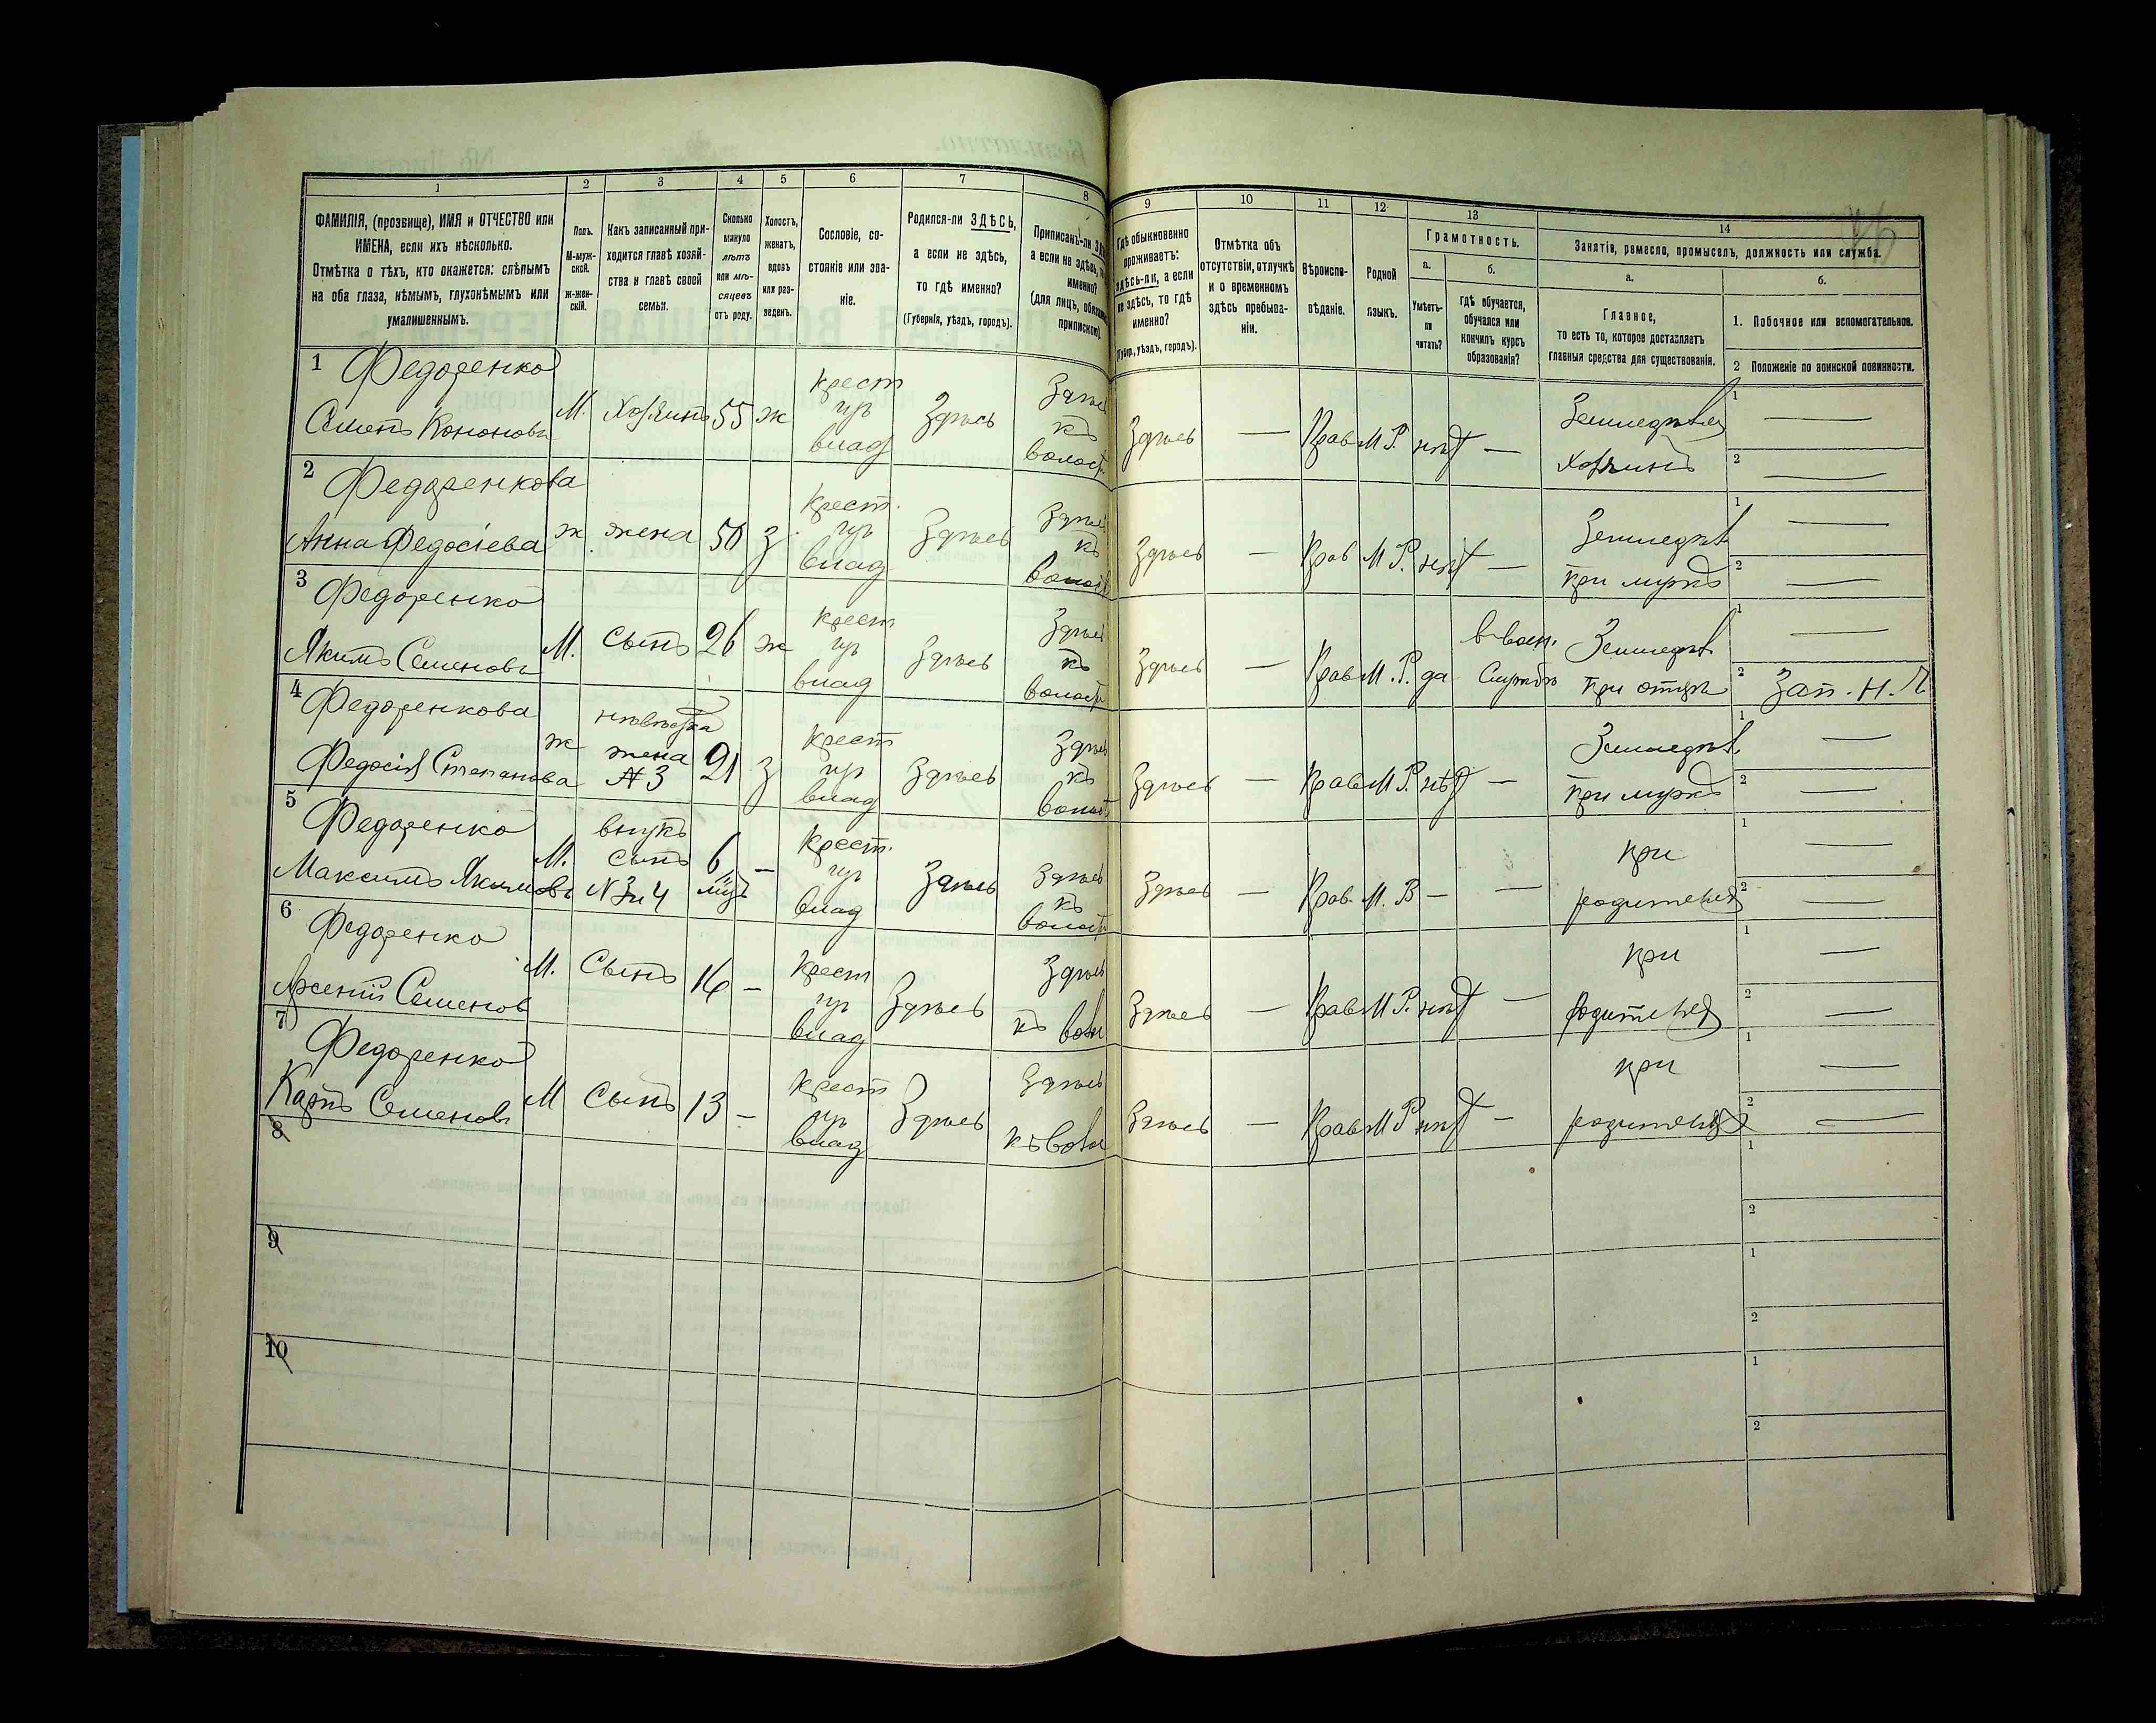 1 2 3 4 5 6 7 8 9 10 11 12 13 14
ФАМИЛІЯ, (прозвище), ИМЯ и ОТЧЕСТВО или
ИМЕНА, если ихъ нѣсколько.
Отмѣтка о тѣхъ, кто окажется: слѣпымъ
на оба глаза, нѣмымъ, глухонѣмымъ или
умалишеннымъ.
Полъ.
М-муж-
ской.
ж-жен-
скій.
Какъ записанный при-
ходится главѣ хозяй-
ства и главѣ своей
семьи.
Сколько
минуло
лѣтъ
или мѣ-
сяцевъ
отъ роду.
Холостъ,
женатъ,
вдовъ
или раз-
веденъ.
Сословіе, со-
стояніе или зва-
ніе.
Родился-ли ЗДѢСЬ,
а если не здѣсь,
то гдѣ именно?
(Губернія, уѣздъ, городъ).
Приписанъ-ли
а если не здѣсь,
именно?
(для лицъ,
припискою).
Гдѣ обыкновенно
проживаетъ:
здѣсь-ли, а если
не здѣсь, то гдѣ
именно?
(Губер., уѣздъ, городъ).
Отмѣтка объ
отсутствіи, отлучкѣ
и о временномъ
здѣсь пребыва-
ніи.
Вѣроиспо-
вѣданіе.
Родной
языкъ.
Грамотность.
а.
Умѣетъ-
ли
читать?
б.
гдѣ обучается,
обучался или
кончилъ курсъ
образованія?
Занятіе, ремесло, промыселъ, должность или служба.
а.
Главное,
то есть то, которое доставляетъ
главныя средства для существованія.
б.
1. Побочное или вспомогательное.
2 Положеніе по воинской повинности.
1 Федоренко
Семенъ Кононовъ
М. Хозяинъ 55 ж
крест
изъ
влад
Здѣсь
Здѣсь
къ
волости
Здѣсь — Прав М.Р. нѣт —
Земледѣлец
Хозяинъ
1 —
2 —
2 Федоренкова
Анна Федосіева
ж. жена 50 з
крест.
изъ
влад
Здѣсь
Здѣсь
къ
волост
Здѣсь — Прав М.Р. нѣт —
Земледѣл
При мужѣ
1 —
2 —
3 Федоренко
Якимъ Семеновъ
М. Сынъ 26 ж
крест
изъ
влад
Здѣсь
Здѣсь
къ
волост
Здѣсь — Прав М.Р. да
в воен.
Службѣ
Земледѣл
При отцѣ
1 —
2 Зап. Н. Ч
4 Федоренкова
Федосія Степанова
ж
невѣстка
жена
№ 3
21 з
крест
изъ
влад
Здѣсь
Здѣсь
къ
волост
Здѣсь — Прав М.Р. нѣт —
Земледѣл
При мужѣ
1 —
2 —
5 Федоренко
Максимъ Якимовъ
М.
внукъ
сынъ
№ 3 и 4
6
мцъ
—
Крест.
изъ
влад
Здѣсь
Здѣсь
къ
волост
Здѣсь — Прав. М. Р — —
при
родителях
1 —
2 —
6 Федоренко
Арсеній Семенов
М. Сынъ 16 —
крест
изъ
влад
Здѣсь
Здѣсь
къ вол
Здѣсь — Прав М.Р. нѣт —
при
родителях
1 —
2 —
7 Федоренко
Карпъ Семеновъ
М Сынъ 13 —
крест
изъ
влад
Здѣсь
Здѣсь
къ вол
Здѣсь — Прав М Р нѣт —
при
родителях
1 —
2 —
8
1
2
9
1
2
10
1
2